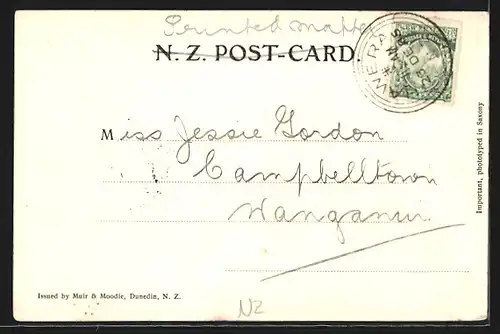 Printed matter
N. Z. POST-CARD.
HAWERA
Miss Jessie Gordon
Campbelltown
Wanganui
Important, phototyped in Saxony
Issued by Muir & Moodie, Dunedin, N. Z.
NZ